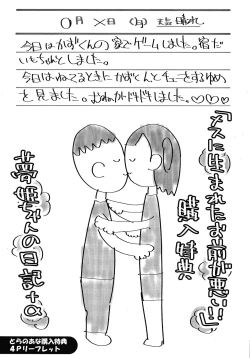 ○月×日(月)天気 晴れ
今日はかずくんの家でゲームしました。宿だ
いもちゃんとしました。
今日はねてるときにかずくんとチューをするゆめ
を見ました。おむねがドキドキしました。♡♡♡
『メスに生まれたお前が悪い!!』
購入特典
夢姫ちゃんの日記+α
とらのあな購入特典
4Pリーフレット